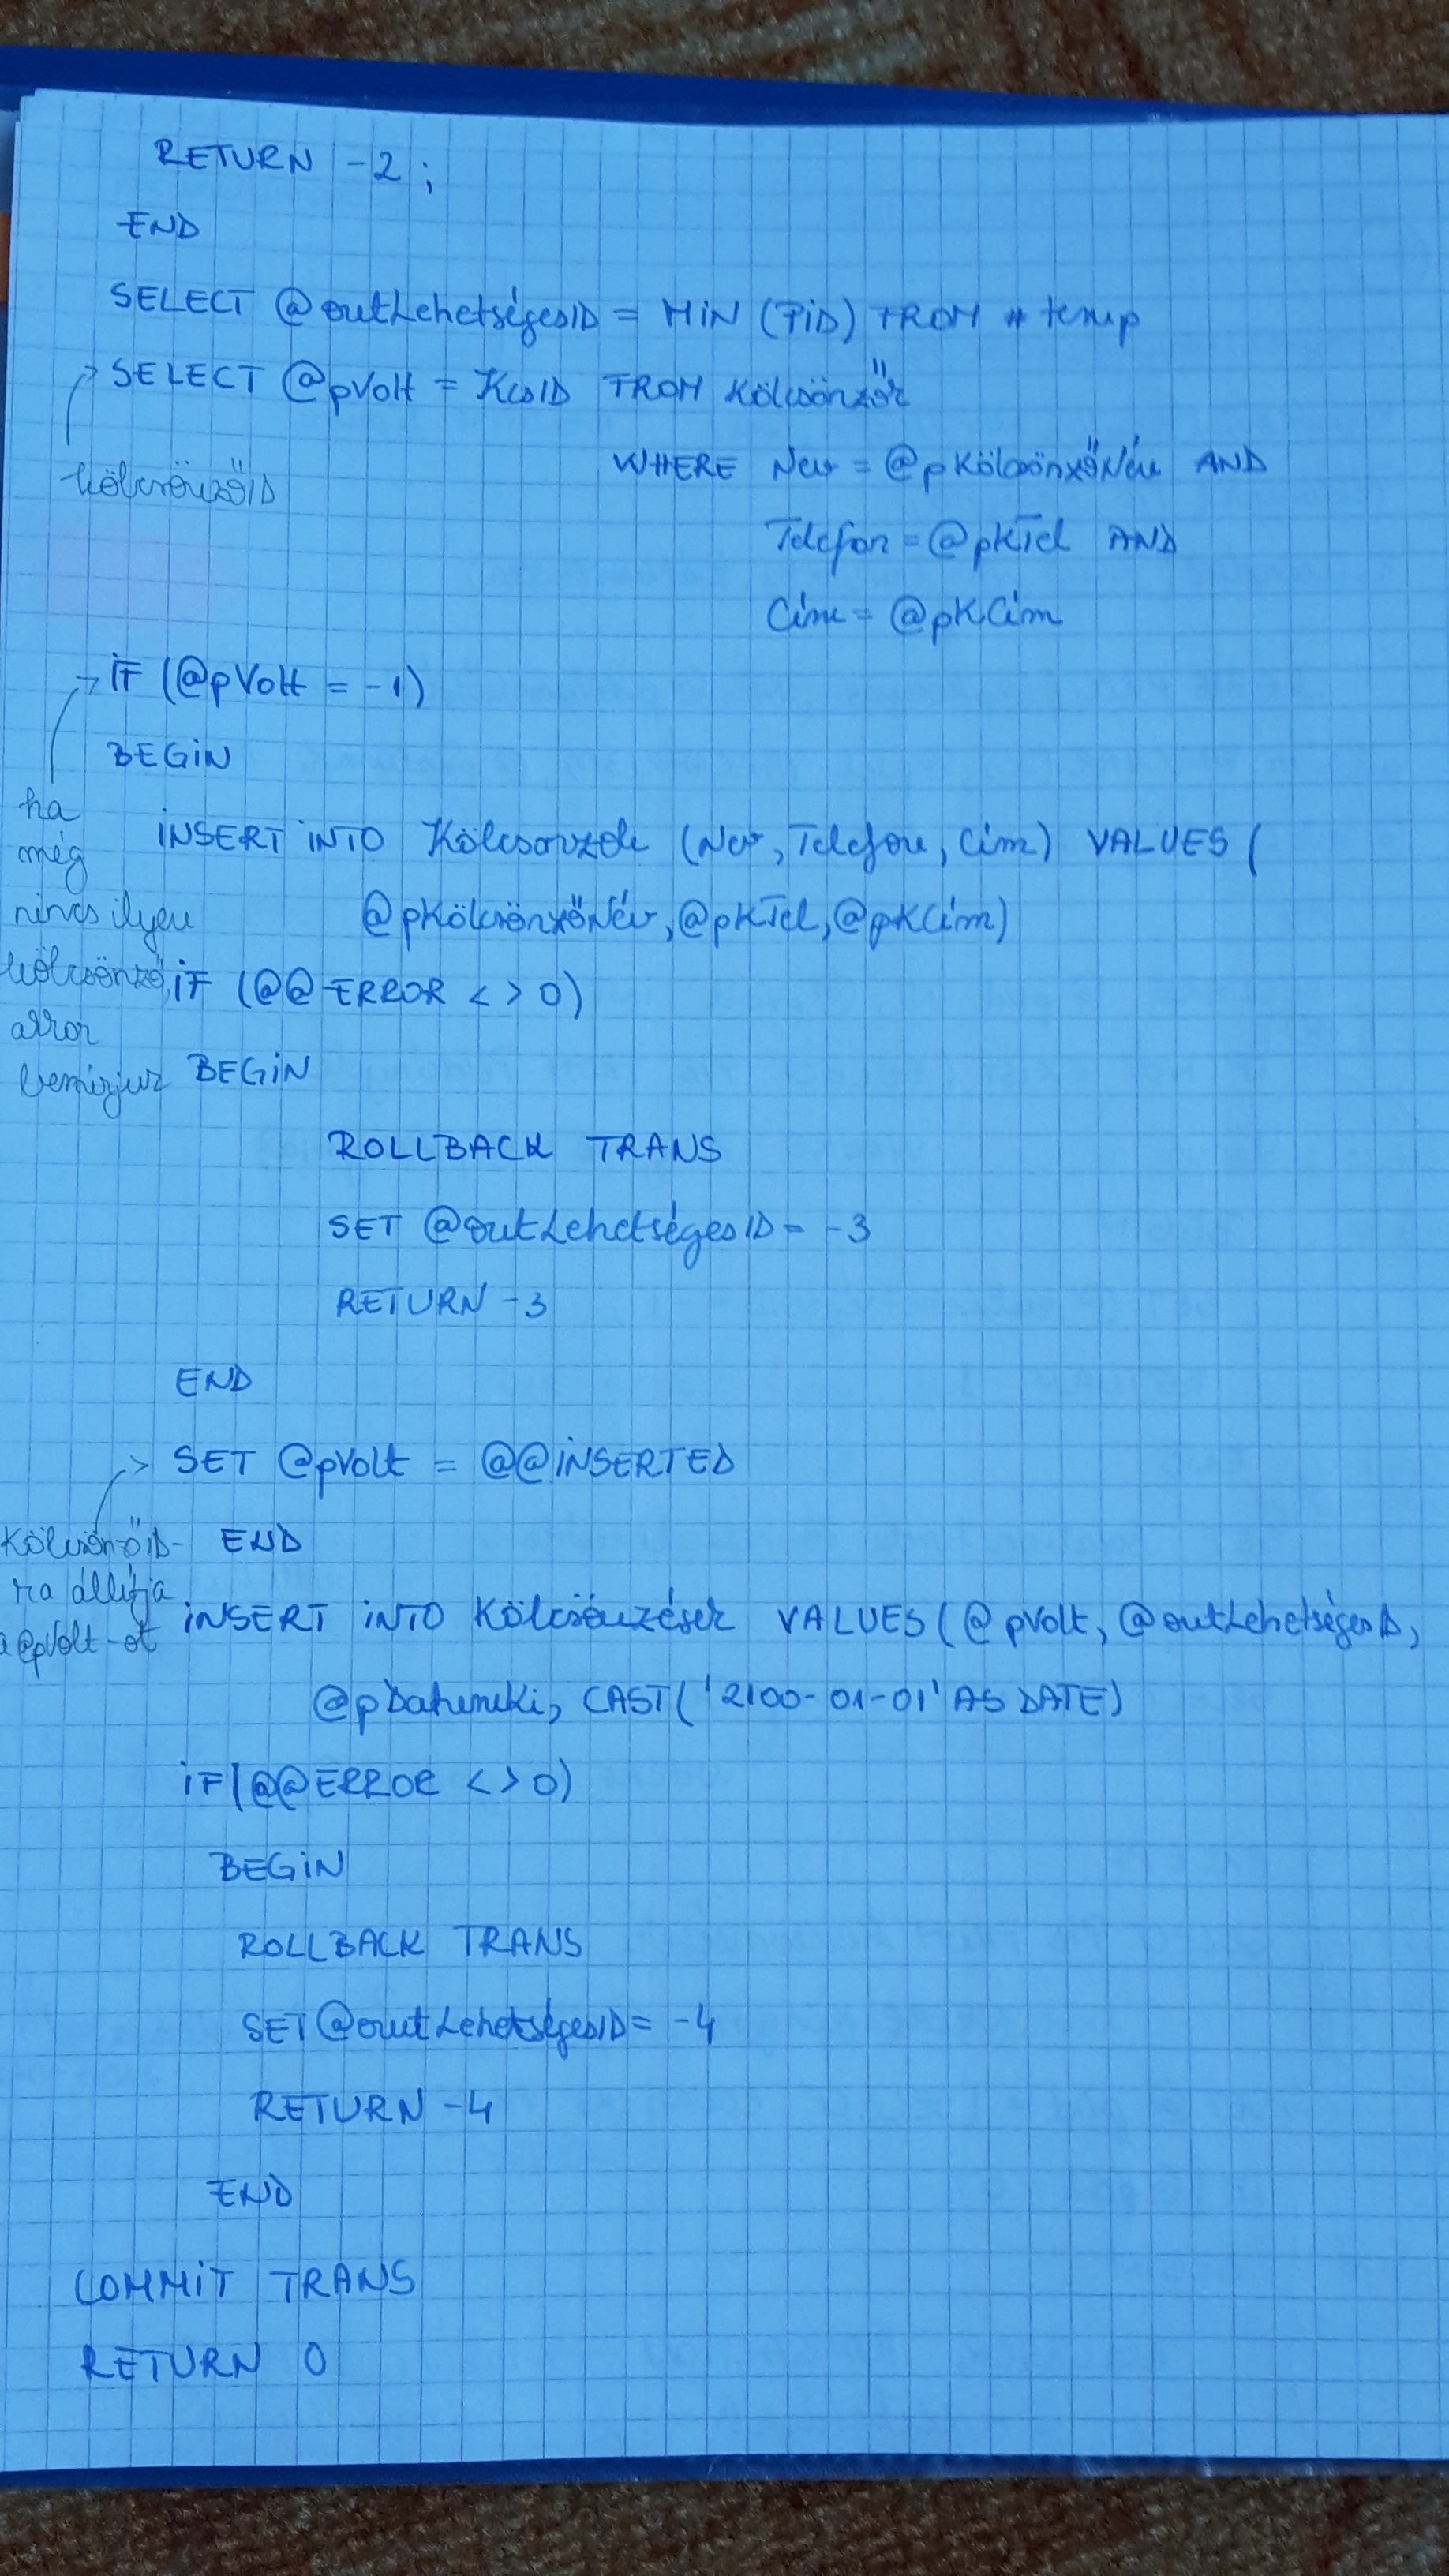 RETURN -2;
END
SELECT @outLehetségesID = MIN (PID) FROM #temp
SELECT @pVolt = KcsID FROM Kölcsönzők
kölcsönzőID
WHERE Nev = @pKölcsönzőNév AND
Telefon = @pKTel AND
Cím = @pKCím
IF (@pVolt = -1)
BEGIN
ha
még
nincs ilyen
kölcsönző,
akkor
beszúrjuk
INSERT INTO Kölcsonzok (Nev, Telefon, Cim) VALUES (
@pKölcsönzőNév, @pKTel, @pKCím)
IF (@@ERROR <> 0)
BEGIN
ROLLBACK TRANS
SET @outLehetségesID = -3
RETURN -3
END
SET @pVolt = @@INSERTED
KölcsönzőID-
ra állítja
a @pVolt-ot
END
INSERT INTO Kölcsönzések VALUES (@pVolt, @outLehetségesID,
@pDatumKi, CAST('2100-01-01' AS DATE)
IF(@@ERROR <> 0)
BEGIN
ROLLBACK TRANS
SET @outLehetségesID = -4
RETURN -4
END
COMMIT TRANS
RETURN 0